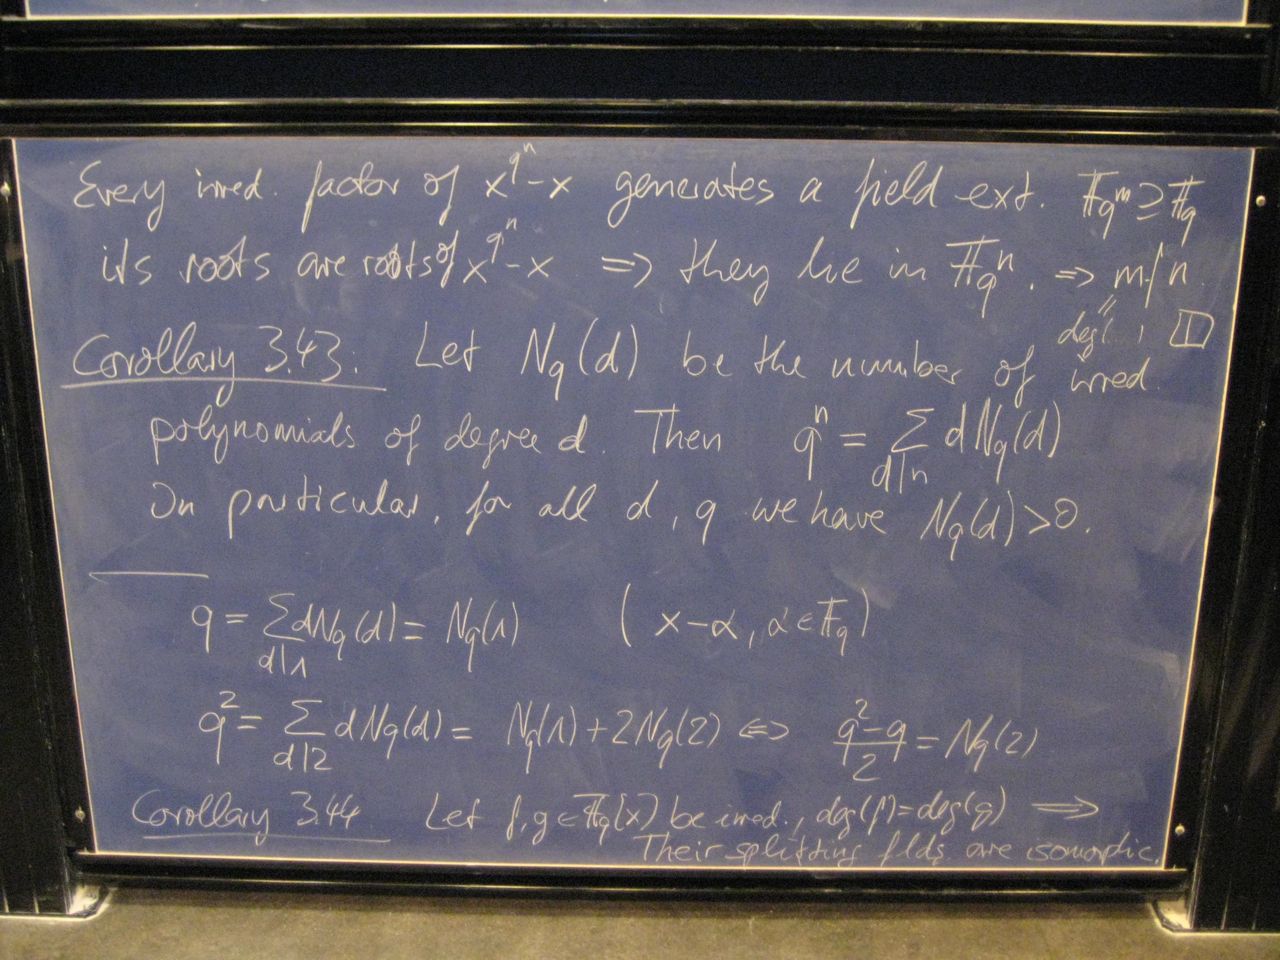 Every irred. factor of x^{q^n} - x generates a field ext. 𝔽_{q^m} ⊇ 𝔽_q
its roots are roots of x^{q^n} - x ⇒ they lie in 𝔽_{q^n}. ⇒ m | n.
Corollary 3.43: Let N_q(d) be the number of irred.
polynomials of degree d. Then q^n = ∑_{d|n} d N_q(d)
In particular, for all d, q we have N_q(d) > 0.
q = ∑_{d|1} d N_q(d) = N_q(1) ( x - α, α ∈ 𝔽_q )
q^2 = ∑_{d|2} d N_q(d) = N_q(1) + 2N_q(2) ⇔ \frac{q^2 - q}{2} = N_q(2)
Corollary 3.44 Let f, g ∈ 𝔽_q[x] be irred., deg(f) = deg(g) ⇒
Their splitting flds are isomorphic.